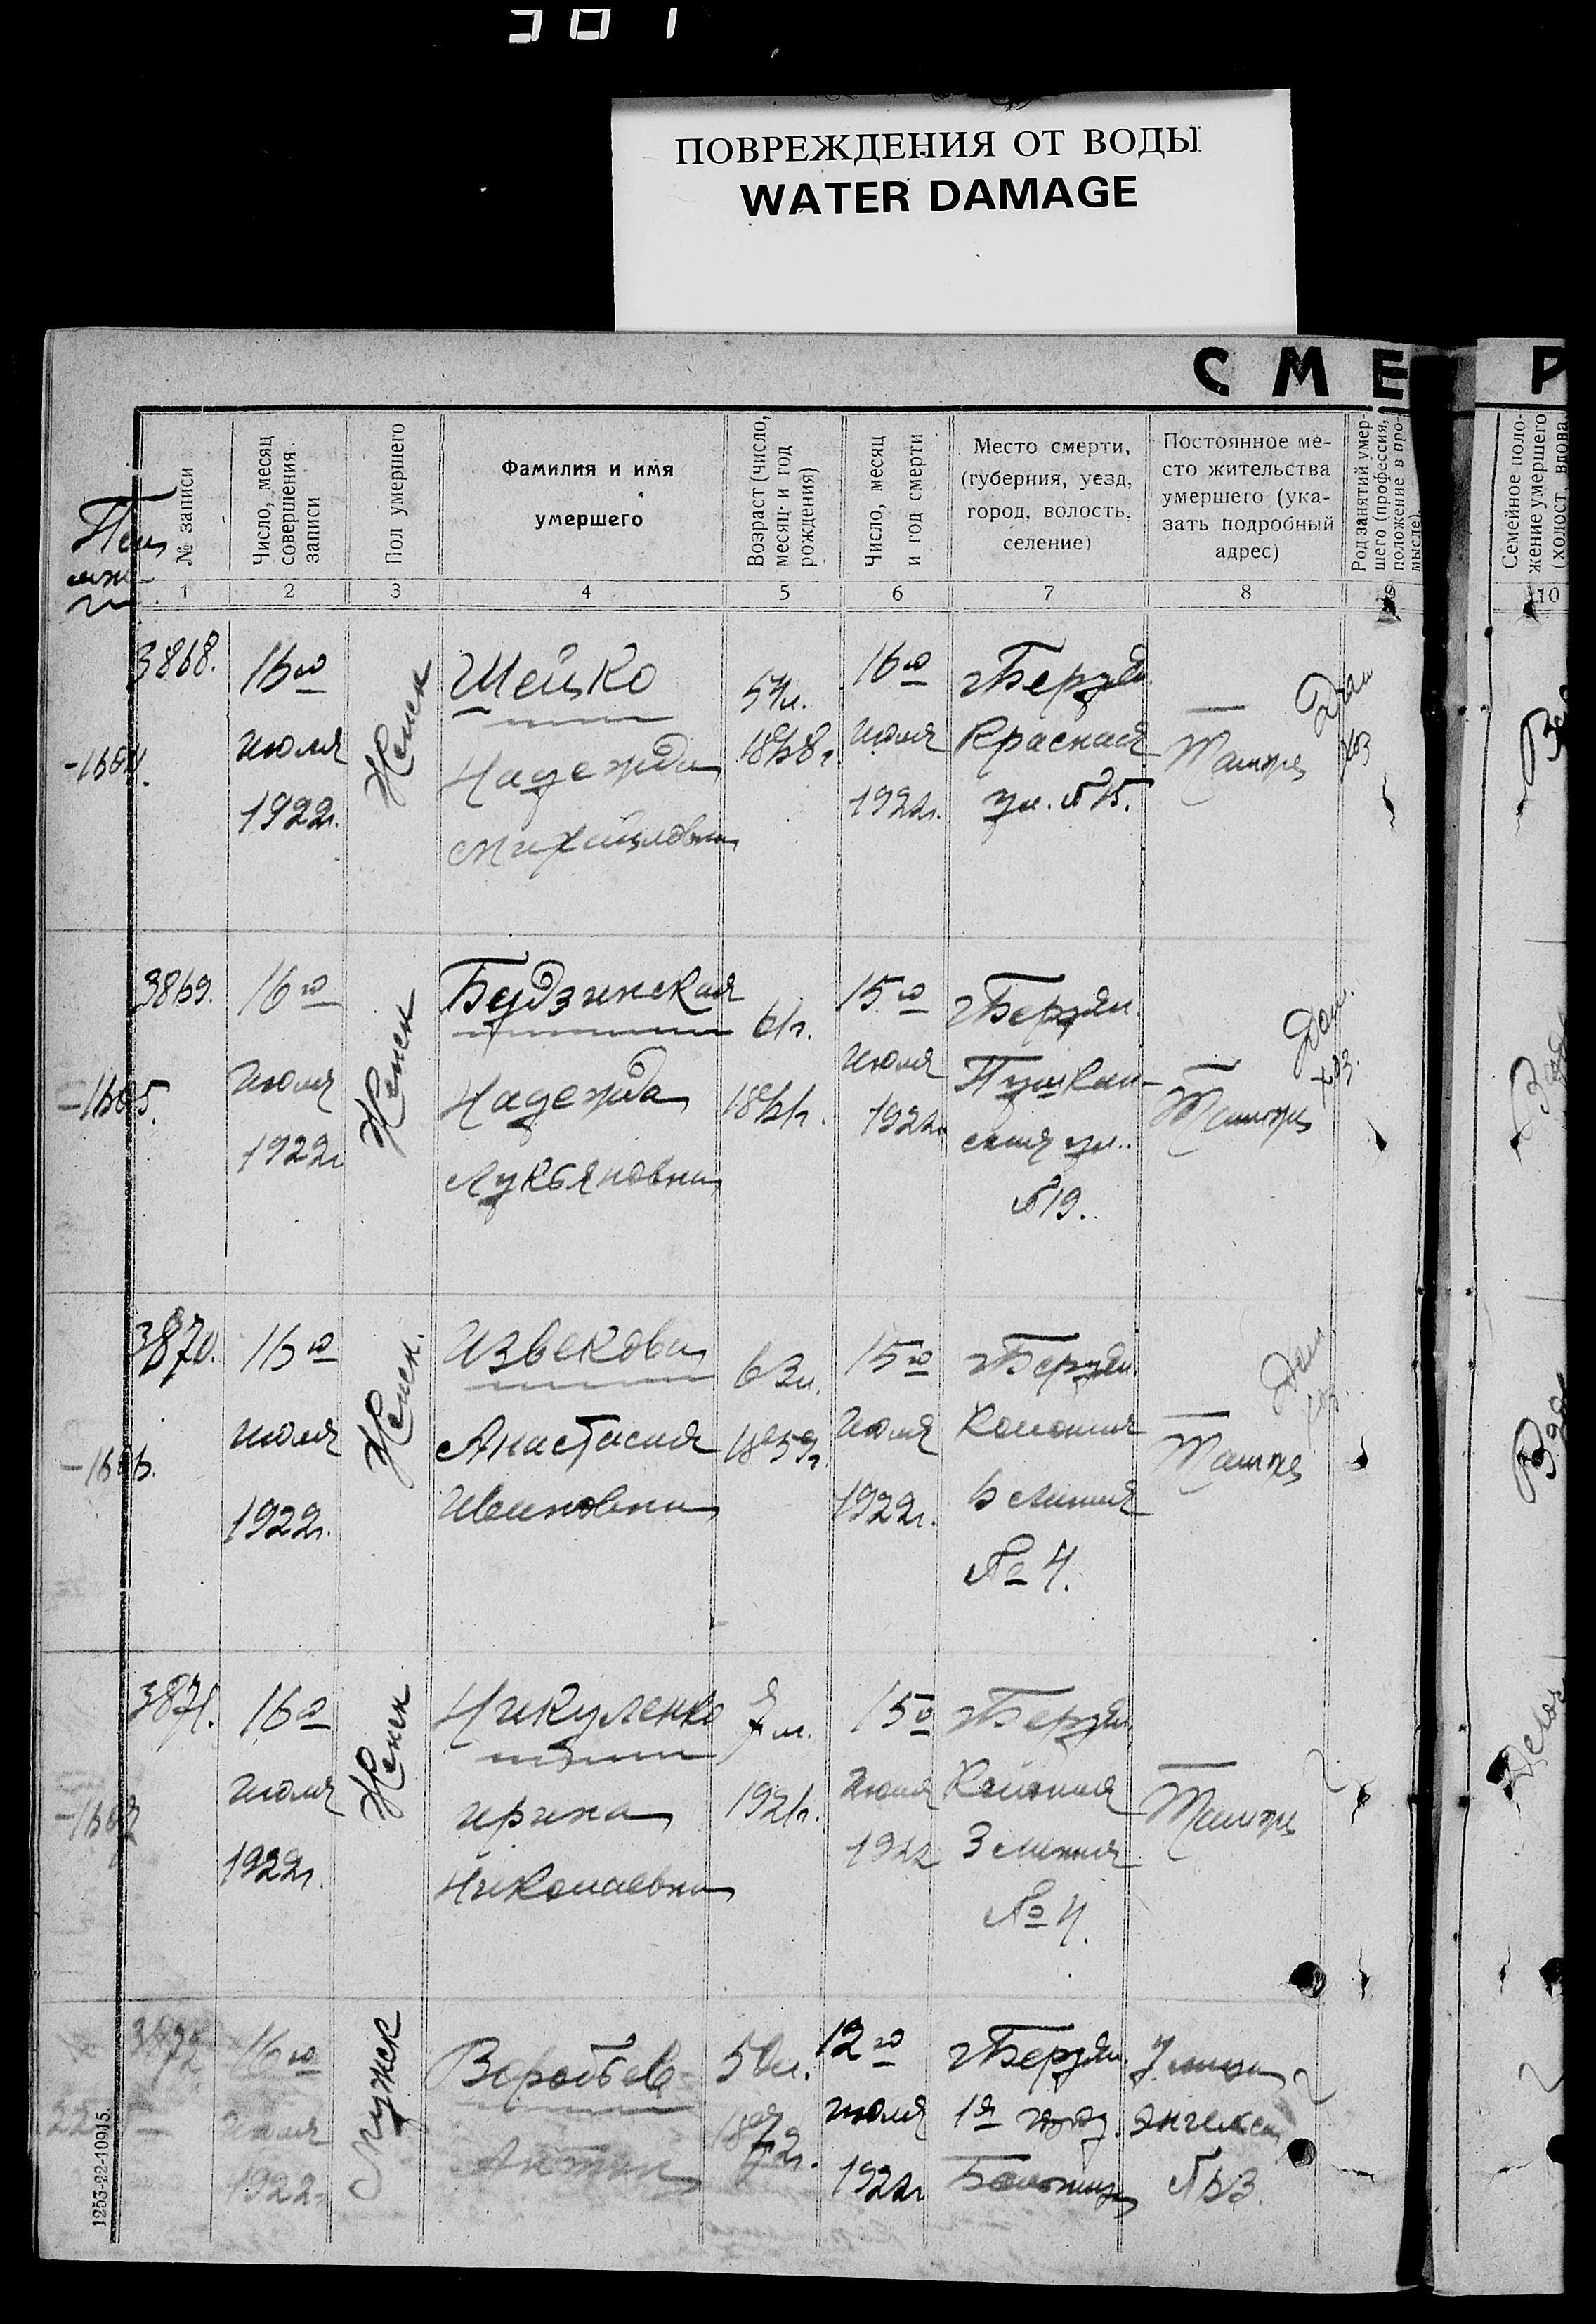 301
ПОВРЕЖДЕНИЯ ОТ ВОДЫ
WATER DAMAGE
СМЕ Р
№ записи
Число, месяц
совершения
записи
Пол умершего
Фамилия и имя
умершего
Возраст (число,
месяц и год
рождения)
Число, месяц
и год смерти
Место смерти,
(губерния, уезд,
город, волость,
селение)
Постоянное ме-
сто жительства
умершего (ука-
зать подробный
адрес)
Род занятий умер-
шего (профессия,
положение в про-
мысле).
Семейное поло-
жение умершего
(холост, вдова,
1 2 3 4 5 6 7 8 9 10
3868.
16го
июля
1922г.
Женск
Шейко
Надежда
Михайловна
54л.
1868г.
16го
июля
1922г.
г Бердян
Красная
ул. №
Там же
Дом
хоз
3869.
-1605.
16го
июля
1922г
Женск
Будзинская
Надежда
Лукьяновна
61г.
1861г.
15го
июля
1922г.
г Бердян.
Пушкин-
ская ул.
№19.
Там же
Дом.
хоз.
3870.
-1606.
16го
июля
1922г.
Женск.
Извекова
Анастасия
Ивановна
63л.
1859г.
15го
июля
1922г.
г Бердян.
Колония
6 линия
№ 4.
Там же
Дом
хоз.
3871.
-1607
16го
июля
1922г.
Женск
Никуленко
Ирина
Николаевна
1921г.
15го
июля
1922
г Бердян.
Колония
3 линия
№ 4.
Там же
3872
16го
июля
1922г.
Мужск
Воробьев
Антон
50л.
1872г.
12го
июля
1922г
г Бердян.
1я
Больница
Улица
Энгельса
№63.
1253-22-10915.